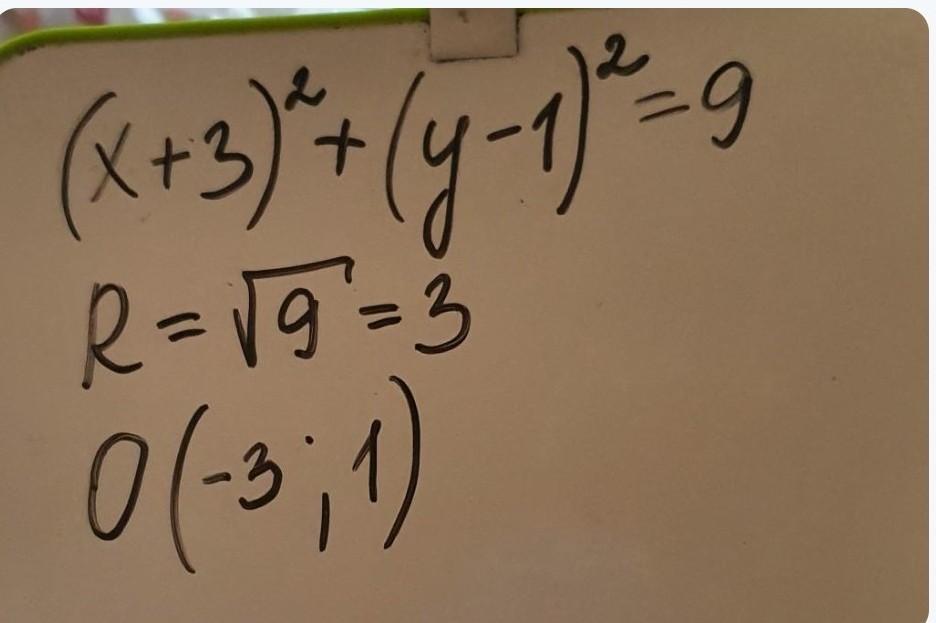 (x+3)²+(y-1)²=9
R=√9=3
O(-3;1)